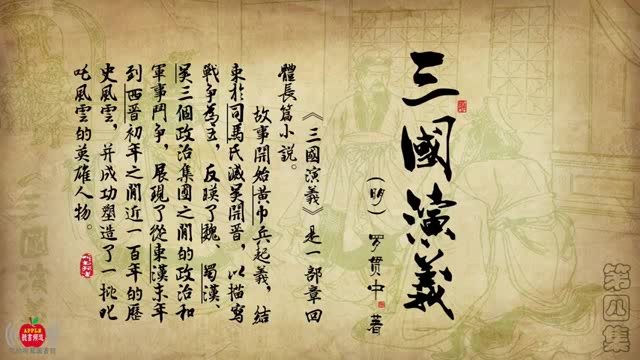 三國演義
(明) 罗貫中 著
《三國演義》是一部章回
體長篇小說。
故事開始黃巾兵起義，結
束於司馬氏滅吴開晉，以描寫
戰争為主，反暎了魏、蜀漢、
吴三個政治集團之間的政治和
軍事鬥争，展現了從東漢末年
到西晉初年之間近一百年的歷
史風雲，并成功塑造了一批叱
吒風雲的英雄人物。
第四集
APPLE
聽書頻道